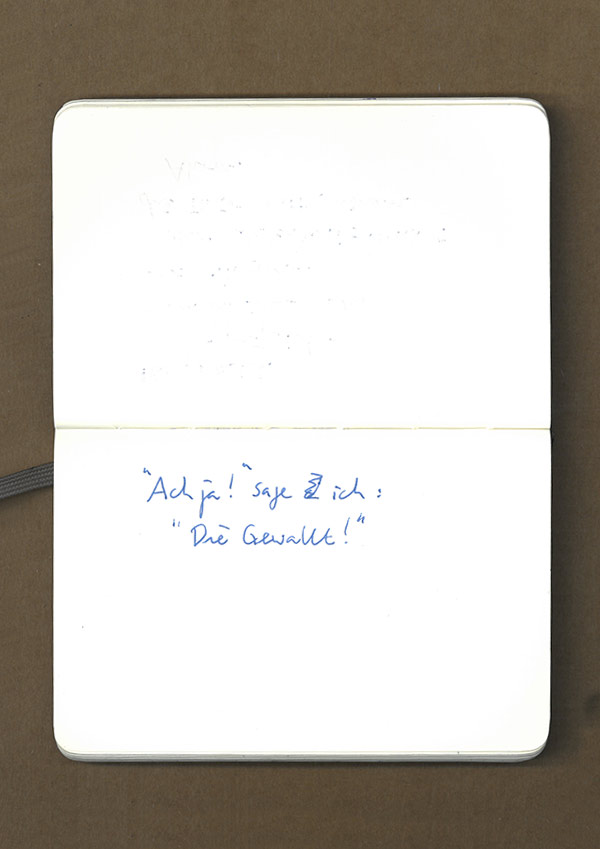 "Ach ja!" sage ich:
"Die Gewallt!"